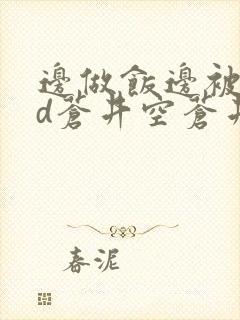 邊做飯邊被
d蒼井空蒼井
春泥